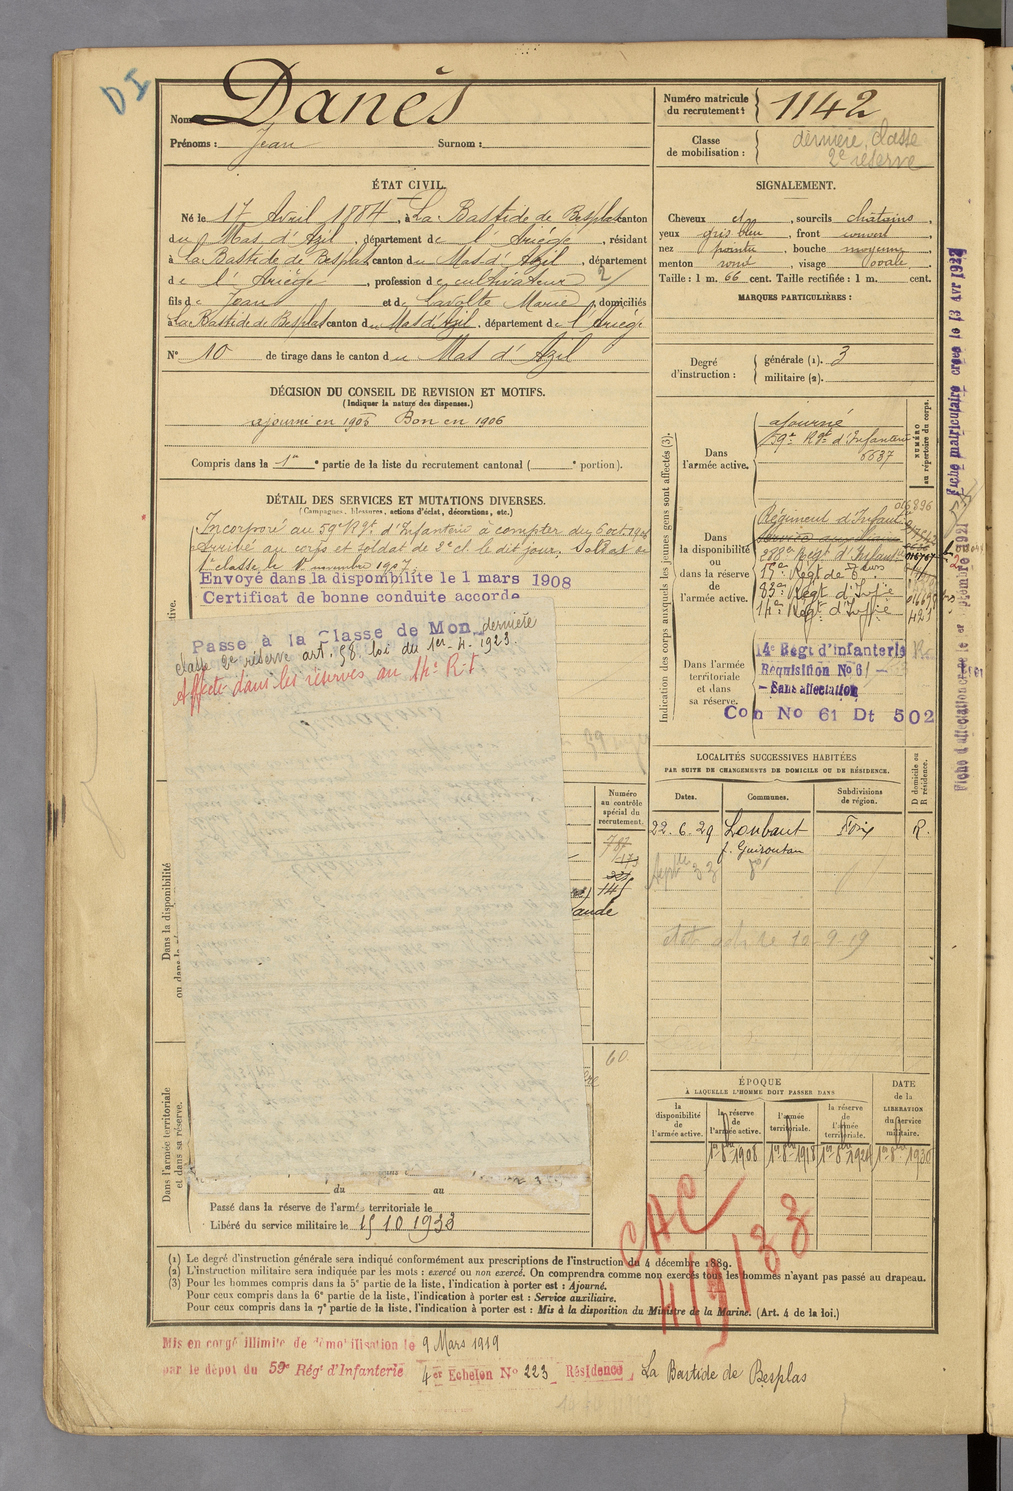 DI
Nom Danès
Prénoms : Jean Surnom :
Numéro matricule du recrutement : 1142
Classe de mobilisation : dernière classe
2e réserve
ÉTAT CIVIL.
Né le 17 Avril 1884, à La Bastide de Besplas canton
du Mas d'Azil, département de l'Ariège, résidant
à La Bastide de Besplas, canton du Mas d'Azil, département
de l'Ariège, profession de cultivateur 2/
fils de Jean et de Lavolte Marie, domiciliés
à La Bastide de Besplas canton du Mas d'Azil, département de l'Ariège
N° 10 de tirage dans le canton du Mas d'Azil
SIGNALEMENT.
Cheveux ch, sourcils châtains,
yeux gris bleu, front couvert,
nez pointu, bouche moyenne,
menton rond, visage ovale.
Taille : 1 m. 66 cent. Taille rectifiée : 1 m. cent.
MARQUES PARTICULIÈRES :
Degré d'instruction :
générale (1). 3
militaire (2).
DÉCISION DU CONSEIL DE REVISION ET MOTIFS.
(Indiquer la nature des dispenses.)
ajourné en 1905 Bon en 1906
Compris dans la 1re partie de la liste du recrutement cantonal ( e portion).
DÉTAIL DES SERVICES ET MUTATIONS DIVERSES.
(Campagnes, blessures, actions d'éclat, décorations, etc.)
Incorporé au 59e Rgt d'Infanterie à compter du 6 oct. 1906
Arrivé au corps et soldat de 2e cl. le dit jour. Soldat de
1e classe le 8 novembre 1907.
Envoyé dans la disponibilité le 1 mars 1908
Certificat de bonne conduite accordé
Passé à la Classe de Mon dernière
classe 2e réserve art. 58 loi du 1er-4-1923.
Affecté dans les réserves au 14e R.I
Indication des corps auxquels les jeunes gens sont affectés (3).
NUMÉRO au répertoire du corps.
Dans l'armée active.
ajourné
59e Rgt d'Infanterie
6637
Dans la disponibilité ou dans la réserve de l'armée active.
Régiment d'Infant.
Service auxiliaire
288e Régt d'Infant.
15e Régt de
83e Régt d'Infie
14e Régt d'Infie
Dans l'armée territoriale et dans sa réserve.
14e Régt d'infanterie
Requisition No 6/
- Sans affectation
Con No 61 Dt 502
Fiche matriculaire créée le 13 Avr 1922
LOCALITÉS SUCCESSIVES HABITÉES
PAR SUITE DE CHANGEMENTS DE DOMICILE OU DE RÉSIDENCE.
Dates. Communes. Subdivisions de région. D domicile ou R résidence.
22.6.29 Loubaut Foix R.
f. Guiroutan
10-9-19
Numéro au contrôle spécial du recrutement.
145
60
Dans la disponibilité
Dans l'armée territoriale et dans sa réserve.
ÉPOQUE
À LAQUELLE L'HOMME DOIT PASSER DANS
DATE de la LIBÉRATION du service militaire.
la disponibilité de l'armée active.
la réserve de l'armée active.
l'armée territoriale.
la réserve de l'armée territoriale.
1er 8bre 1908 1er 8bre 1918 1er 8bre 1924 1er 8bre 1930
du au
Passé dans la réserve de l'armée territoriale le
Libéré du service militaire le 15 10 1933
CAC
4/9/33
(1) Le degré d'instruction générale sera indiqué conformément aux prescriptions de l'instruction du 4 décembre 1889.
(2) L'instruction militaire sera indiquée par les mots : exercé ou non exercé. On comprendra comme non exercés tous les hommes n'ayant pas passé au drapeau.
(3) Pour les hommes compris dans la 5e partie de la liste, l'indication à porter est : Ajourné.
Pour ceux compris dans la 6e partie de la liste, l'indication à porter est : Service auxiliaire.
Pour ceux compris dans la 7e partie de la liste, l'indication à porter est : Mis à la disposition du Ministre de la Marine. (Art. 4 de la loi.)
Mis en congé illimité de démobilisation le 9 Mars 1919
par le dépôt du 59e Rég' d'Infanterie 4er Echelon No 223 Résidence La Bastide de Besplas